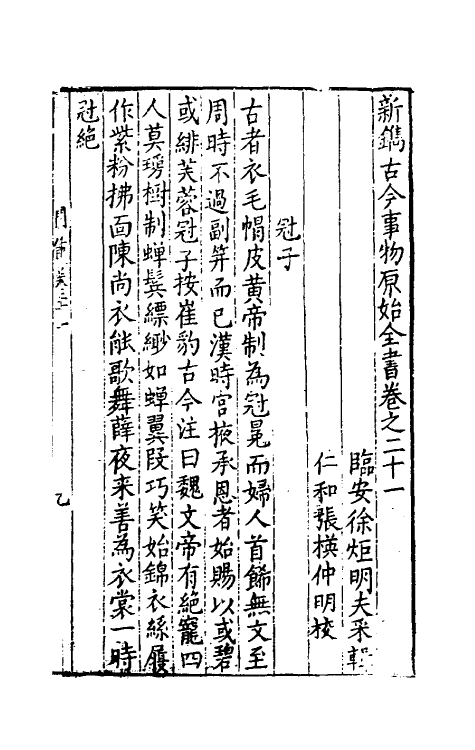 新鐫古今事物原始全書卷之二十一
臨安徐炬明夫采輯
仁和張橫仲明校
冠子
古者衣毛帽皮黄帝制為冠冕而婦人首餙無文至
周時不過副笄而已漢時宮掖承恩者始賜以或碧
或緋芙蓉冠子按崔豹古今注曰魏文帝有絶寵四
人莫瑗樹制蟬鬂縹緲如蟬翼段巧笑始錦衣絲履
作紫粉拂面陳尚衣能歌舞薛夜来善為衣裳一時
冠絶